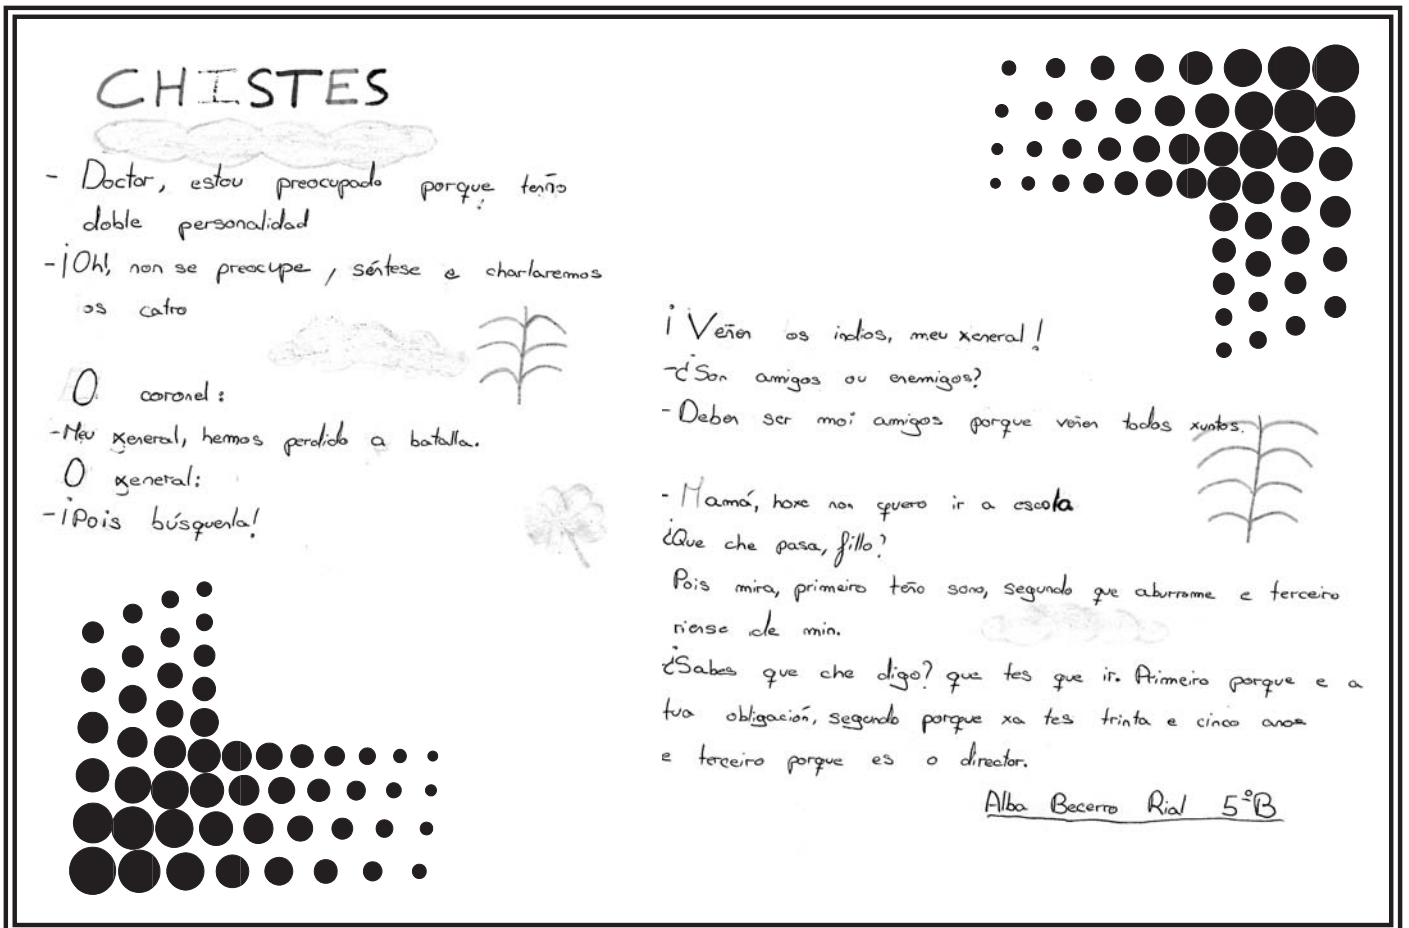 CHISTES
- Doctor, estou preocupado porque teño
doble personalidad
- ¡Oh!, non se preocupe, séntese e charlaremos
os catro
O coronel:
- Meu xeneral, hemos perdido a batalla.
O xeneral:
- ¡Pois búsquenla!
¡Veñen os indios, meu xeneral!
- ¿Son amigos ou enemigos?
- Deben ser moi amigos porque veñen todos xuntos.
- Mamá, hoxe non quero ir a escola
¿Que che pasa, fillo?
Pois mira, primeiro teño sono, segundo que aburrome e terceiro
riense de min.
¿Sabes que che digo? que tes que ir. Primeiro porque e a
tua obligación, segundo porque xa tes trinta e cinco anos
e terceiro porque es o director.
Alba Becerro Rial 5ºB